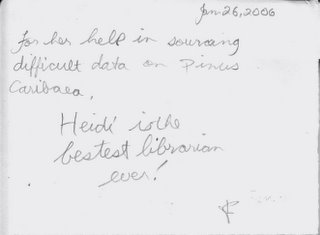 Jan 26, 2006
for her help in sourcing
difficult data on Pinus
Caribaea.
Heidi is the
bestest librarian
ever!